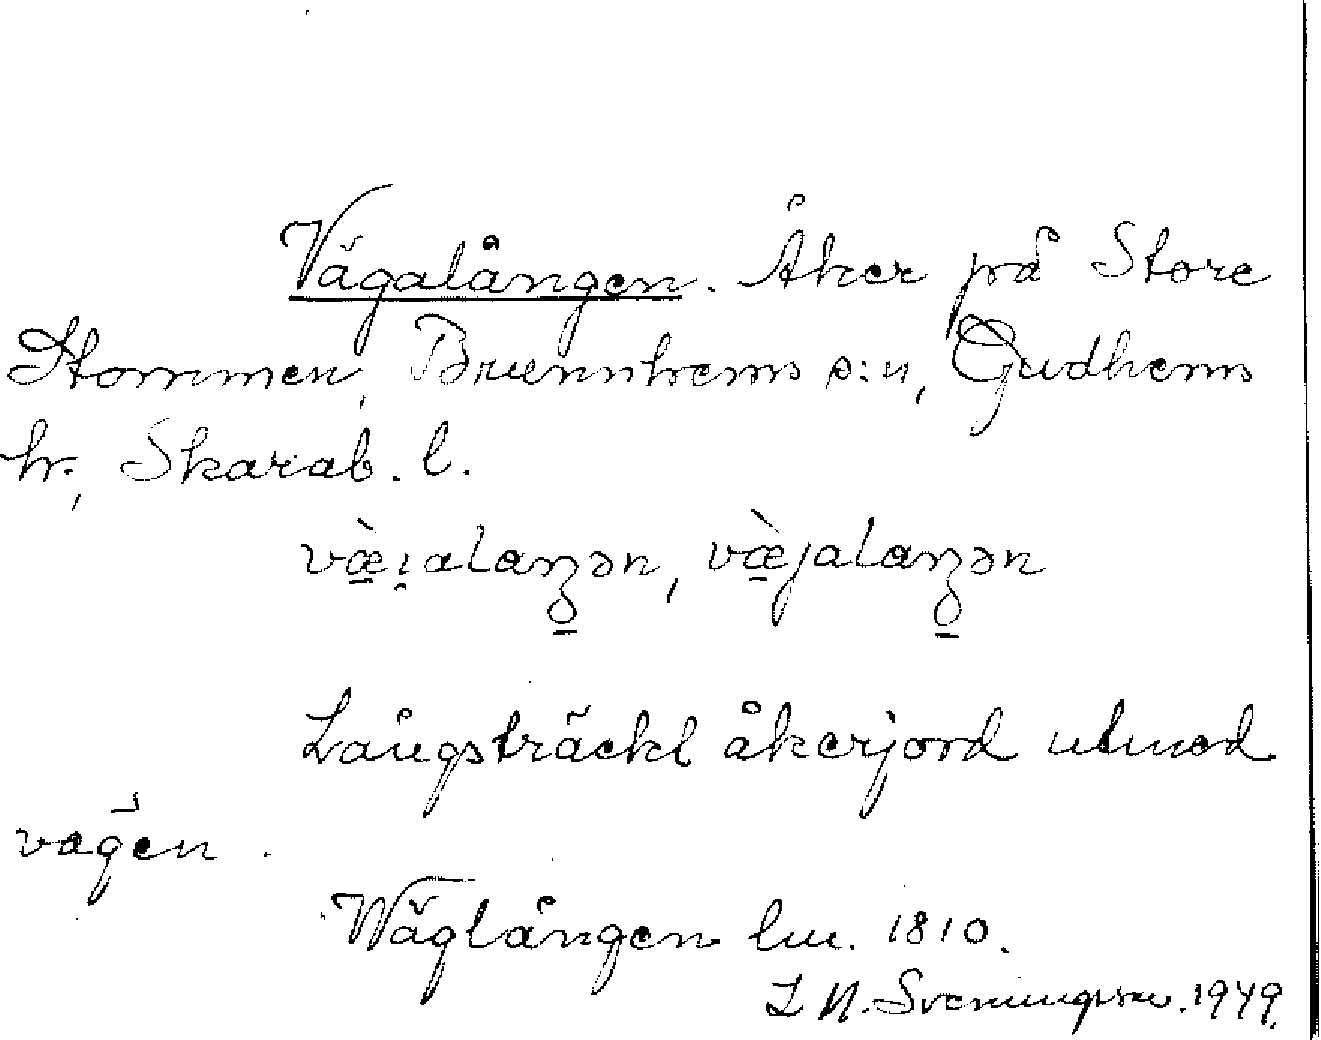 Vägalången. Åker på Store
Stommen, Brunnhems s:n, Gudhems
hr, Skarab. l.
væ̀i̯alaŋən, væ̀jalaŋən
Långsträckt åkerjord utmed
vägen.
Wäglången lm. 1810.
L N. Svenungsson. 1949.